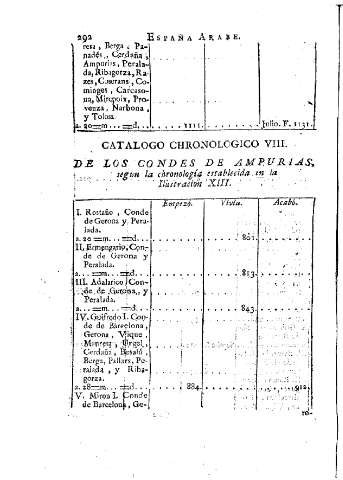 292 ESPAÑA ARABE.
resa, Berga, Pa-
nadés, Cerdaña,
Ampurias, Perala-
da, Ribagorza, Ra-
zes, Coserans, Co-
minges, Carcaso-
na, Mirepoix, Pro-
venza, Narbona,
y Tolosa.
a. 20=m...=d.... 1111. Julio. F. 1131.
CATALOGO CHRONOLOGICO VIII.
DE LOS CONDES DE AMPURIAS,
segun la chronología establecida en la
Ilustracion XIII.
Empezó. Vivia. Acabó.
I. Rostaño, Conde
de Gerona y Pera-
lada.
a. 20=m...=d. 801.
II. Ermengario, Con-
de de Gerona y
Peralada.
a....=m...=d. 813.
III. Adalarico, Con-
de de Gerona, y
Peralada.
a....=m...=d. 843.
IV. Guifredo I. Con-
de de Barcelona,
Gerona, Vique,
Manresa, Urgel,
Cerdaña, Besalú,
Berga, Pallars, Pe-
ralada, y Riba-
gorza.
a. 28=m...=d. 884. 912.
V. Miron I. Conde
de Barcelona, Ge-
ro-